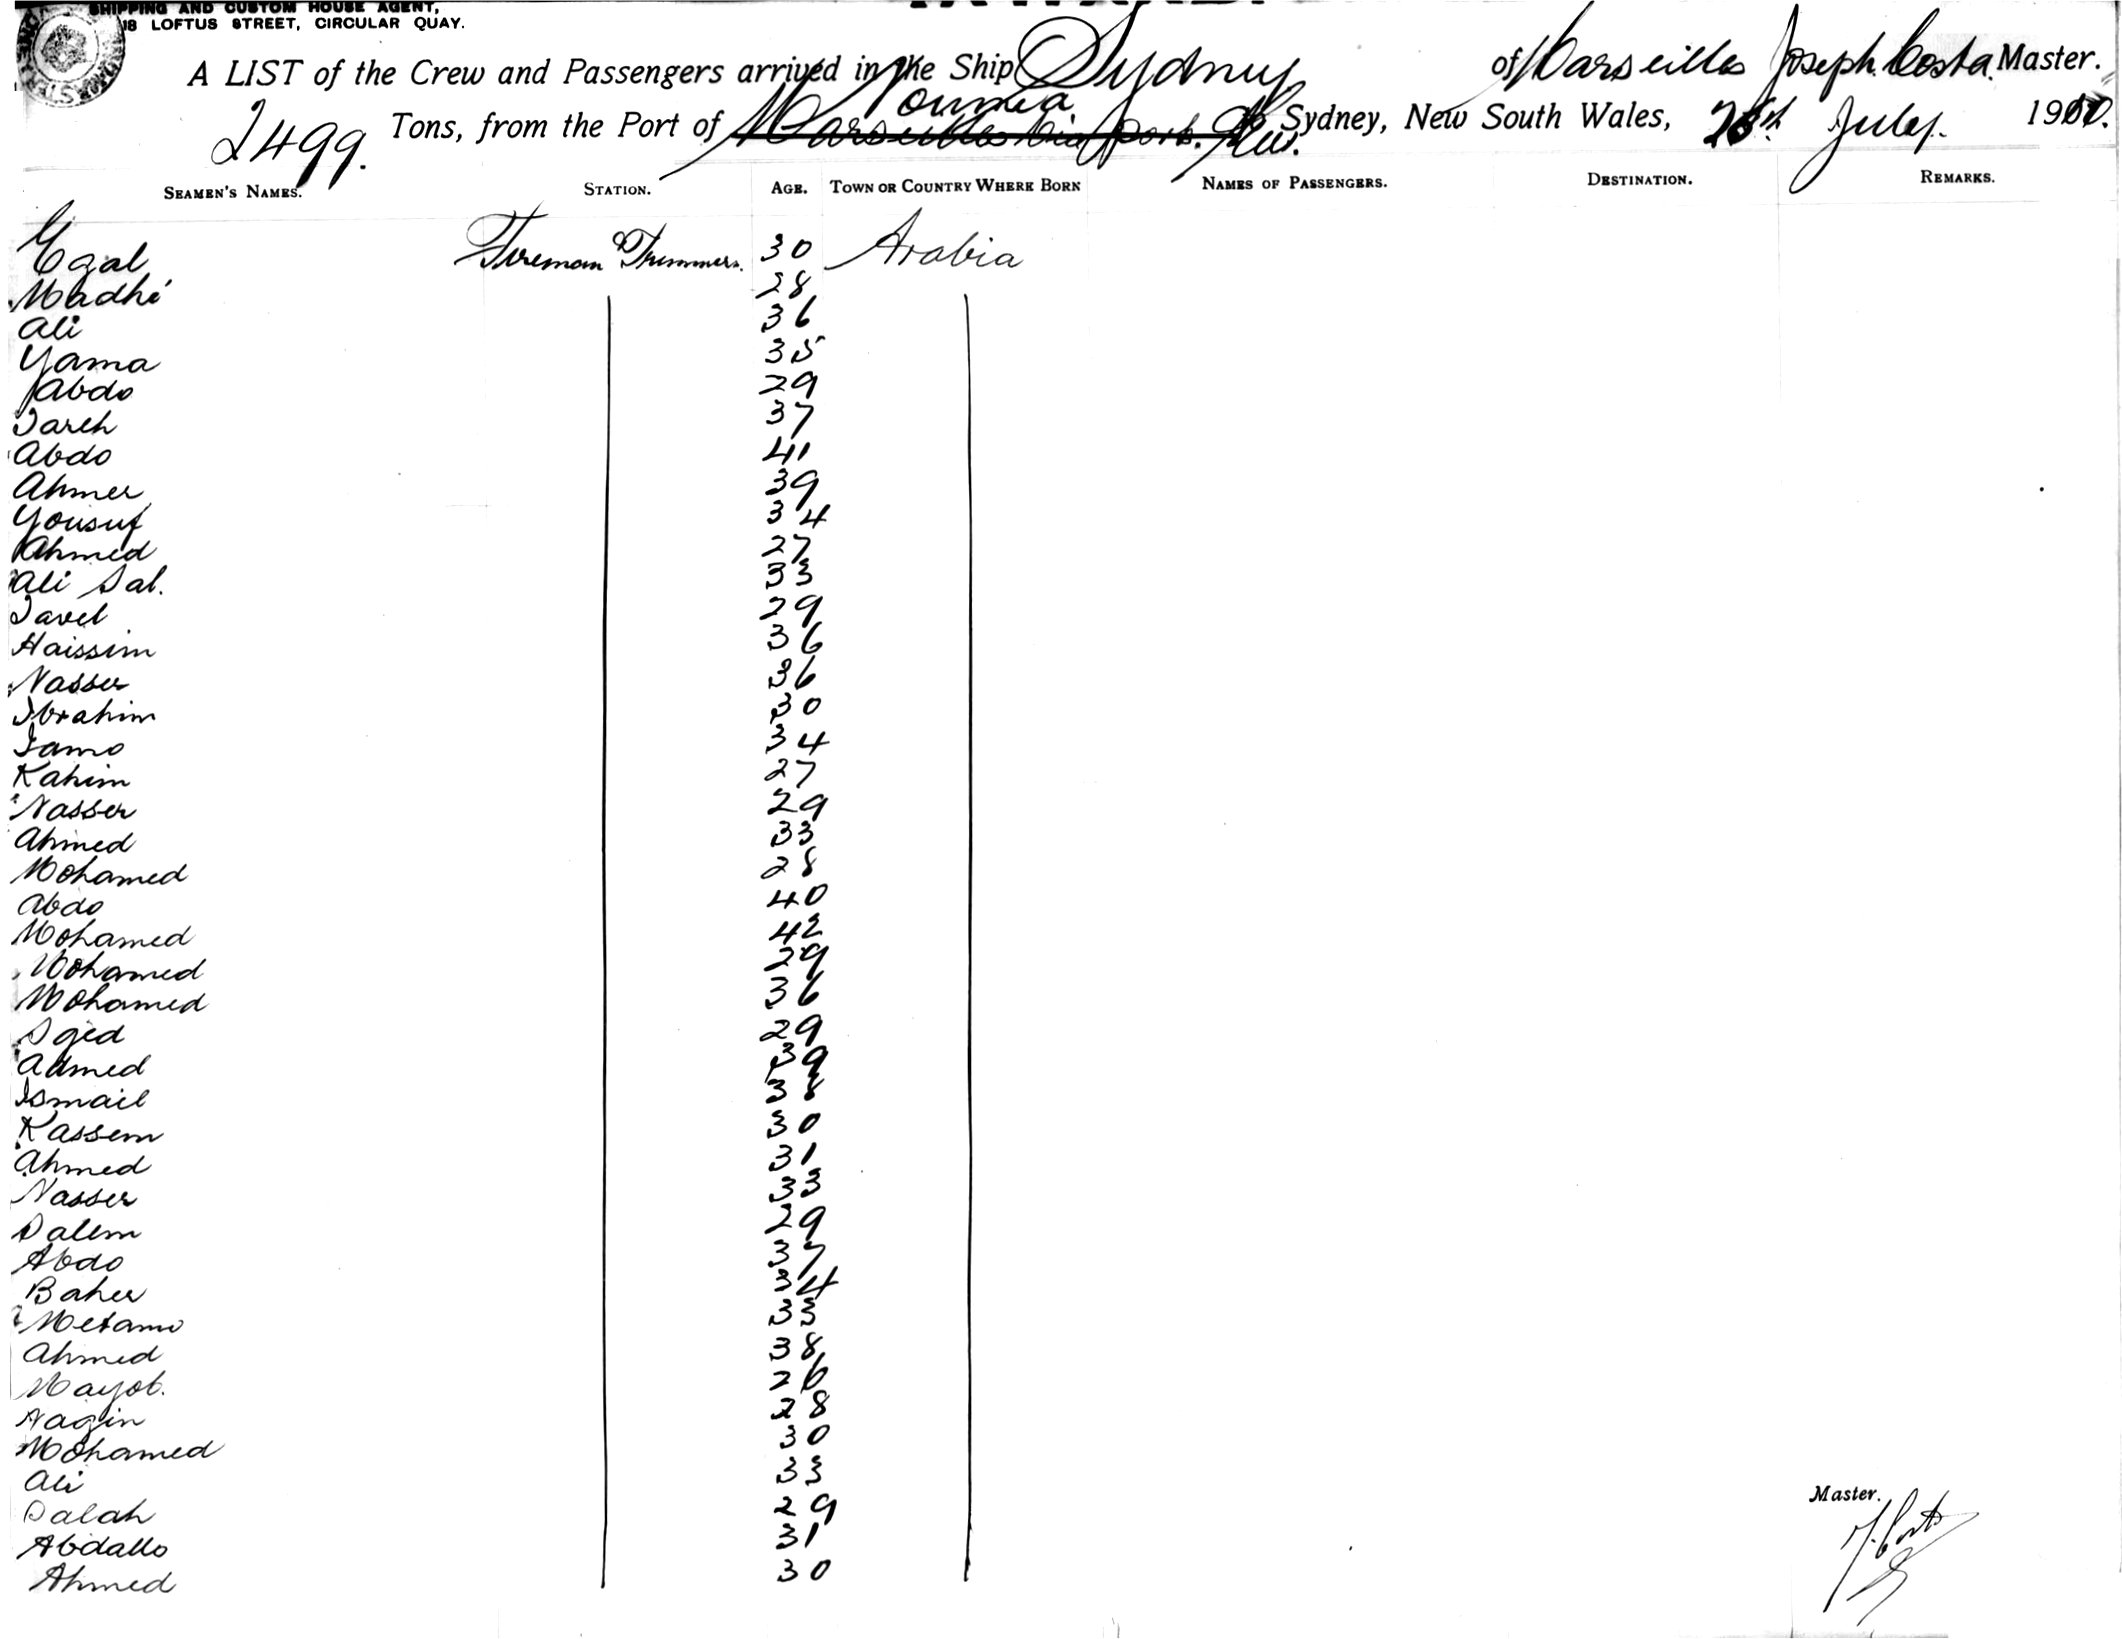 SHIPPING AND CUSTOM HOUSE AGENT,
18 LOFTUS STREET, CIRCULAR QUAY.
A LIST of the Crew and Passengers arrived in the Ship Sydney of Marseilles Joseph Costa Master.
Noumea
2499. Tons, from the Port of Marseilles via ports. to Sydney, New South Wales, July. 19
SEAMEN'S NAMES. STATION. AGE. TOWN OR COUNTRY WHERE BORN NAMES OF PASSENGERS. DESTINATION. REMARKS.
Egal Fireman & Trimmers. 30 Arabia
Madhé 28
Ali 36
Yama 35
Abdo 29
Jareh 37
Abdo 41
Ahmer 39
Yousuf 34
Ahmed 27
Ali Sal. 33
Javel 29
Haissim 36
Nasser 36
Ibrahim 30
Jamo 34
Kahim 27
Nasser 29
Ahmed 33
Mohamed 28
Abdo 40
Mohamed 42
Mohamed 29
Mohamed 36
Sged 29
Admed 39
Ismail 38
Kassem 30
Ahmed 31
Nasser 33
Salem 29
Abdo 37
Baher 34
Metamo 33
Ahmed 38
Mayob. 26
Nagin 28
Mohamed 30
Ali 33
Salah 29
Abdallo 31
Ahmed 30
Master.
J. Costa